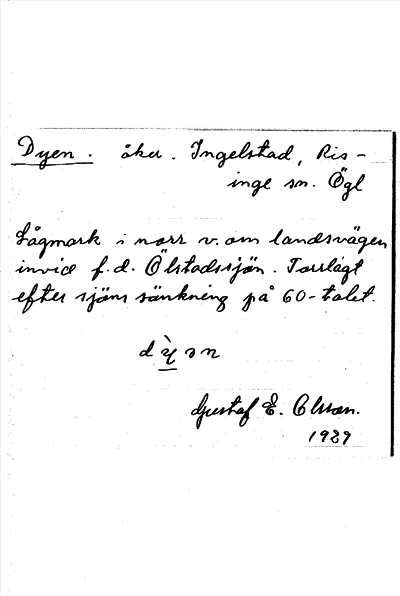 Dyen. åker. Ingelstad, Ris-
inge sn. Ögl
Lågmark i norr v. om landsvägen
invid f.d. Ölstadssjön. Torrlagt
efter sjöns sänkning på 60-talet.
dỳən
Gustaf E. Olsson.
1929